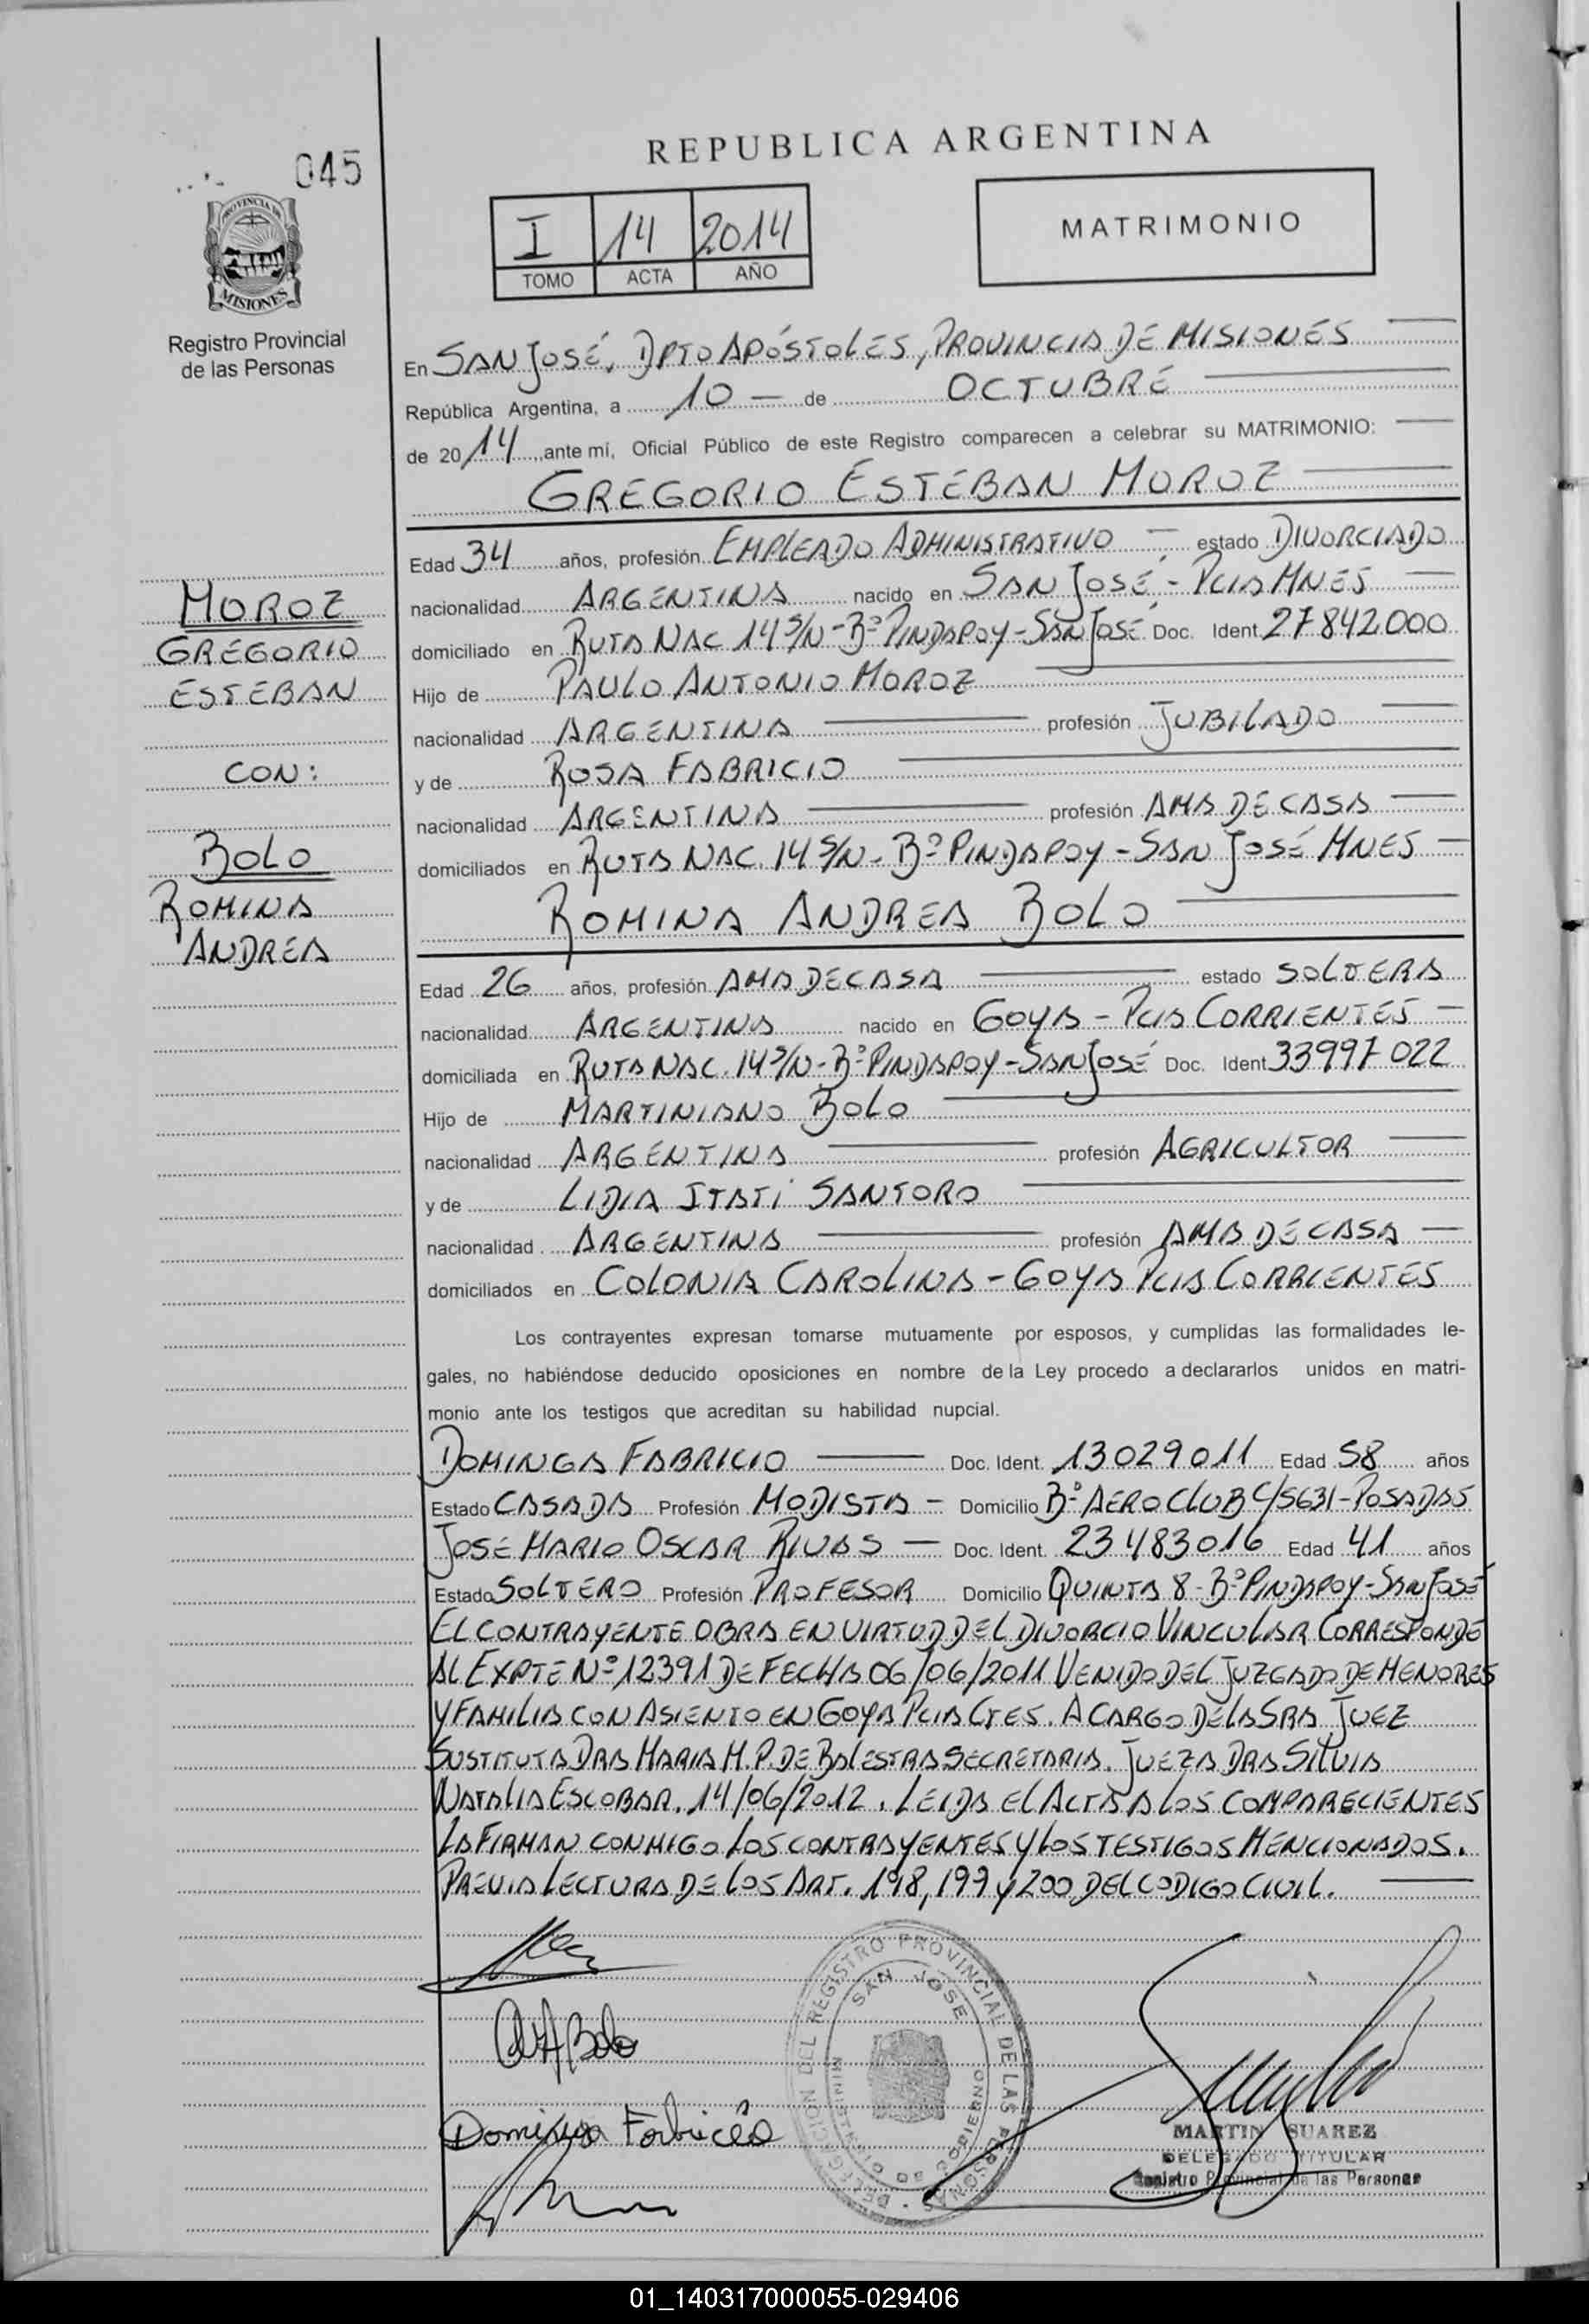 045
REPUBLICA ARGENTINA
PROVINCIA DE
MISIONES
Registro Provincial
de las Personas
I 14 2014
TOMO ACTA AÑO
MATRIMONIO
En SAN JOSÉ, DPTO APÓSTOLES, PROVINCIA DE MISIONES
República Argentina, a 10 — de OCTUBRE
de 2014 ,ante mí, Oficial Público de este Registro comparecen a celebrar su MATRIMONIO:
GREGORIO ESTEBAN MOROZ
Edad 34 años, profesión EMPLEADO ADMINISTRATIVO estado DIVORCIADO
nacionalidad ARGENTINA nacido en SAN JOSÉ - PCIA MNES
domiciliado en RUTA NAC 14 S/N - Bº PINDAPOY - SAN JOSÉ Doc. Ident 27842000
Hijo de PAULO ANTONIO MOROZ
nacionalidad ARGENTINA profesión JUBILADO
y de ROSA FABRICIO
nacionalidad ARGENTINA profesión AMA DE CASA
domiciliados en RUTA NAC. 14 S/N - Bº PINDAPOY - SAN JOSÉ MNES
ROMINA ANDREA BOLO
Edad 26 años, profesión AMA DE CASA estado SOLTERA
nacionalidad ARGENTINA nacido en GOYA - PCIA CORRIENTES
domiciliada en RUTA NAC. 14 S/N - Bº PINDAPOY - SAN JOSÉ Doc. Ident 33997022
Hijo de MARTINIANO BOLO
nacionalidad ARGENTINA profesión AGRICULTOR
y de LIDIA ITATÍ SANTORO
nacionalidad ARGENTINA profesión AMA DE CASA
domiciliados en COLONIA CAROLINA - GOYA PCIA CORRIENTES
MOROZ
GREGORIO
ESTEBAN
CON:
BOLO
ROMINA
ANDREA
Los contrayentes expresan tomarse mutuamente por esposos, y cumplidas las formalidades le-
gales, no habiéndose deducido oposiciones en nombre de la Ley procedo a declararlos unidos en matri-
monio ante los testigos que acreditan su habilidad nupcial.
DOMINGA FABRICIO Doc. Ident. 13029011 Edad 58 años
Estado CASADA Profesión MODISTA - Domicilio Bº AEROCLUB C/5631 - POSADAS
JOSÉ MARIO OSCAR RIVAS — Doc. Ident. 23483016 Edad 41 años
Estado SOLTERO Profesión PROFESOR Domicilio QUINTA 8 - Bº PINDAPOY - SAN JOSÉ
EL CONTRAYENTE OBRA EN VIRTUD DEL DIVORCIO VINCULAR CORRESPONDE
AL EXPTE Nº 12391 DE FECHA 06/06/2011 VENIDO DEL JUZGADO DE MENORES
Y FAMILIA CON ASIENTO EN GOYA PCIA CTES. A CARGO DE LA SRA JUEZ
SUSTITUTA DRA MARIA M. P. DE BALESTRA SECRETARIA. JUEZA DRA SILVIA
NATALIA ESCOBAR. 14/06/2012. LEIDA EL ACTA A LOS COMPARECIENTES
LA FIRMAN CONMIGO LOS CONTRAYENTES Y LOS TESTIGOS MENCIONADOS.
PREVIA LECTURA DE LOS ART. 198, 199 Y 200 DEL CODIGO CIVIL.
Bolo
Dominga Fabricio
DELEGACION DEL REGISTRO PROVINCIAL DE LAS PERSONAS
SAN JOSE
MINISTERIO DE GOBIERNO
MARTIN SUAREZ
DELEGADO TITULAR
Registro Provincial de las Personas
01_140317000055-029406